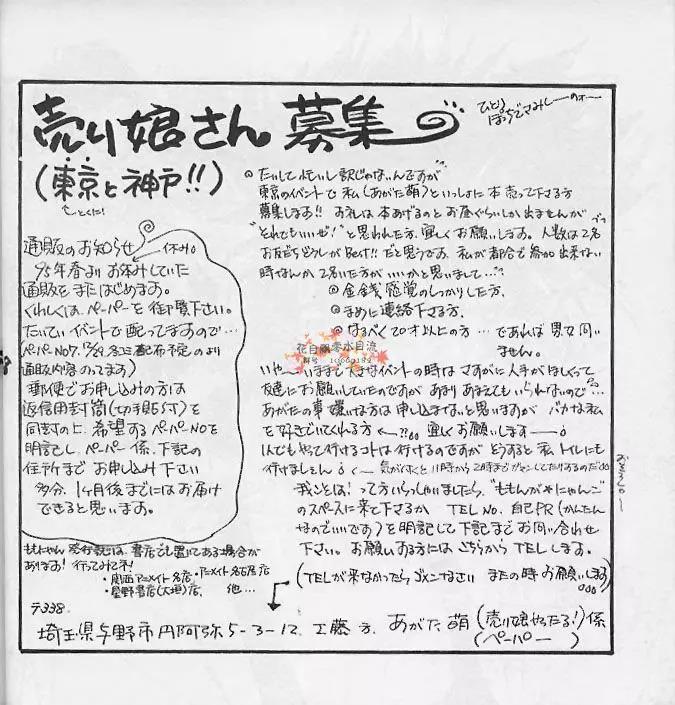 売り娘さん 募集
ひとりぼっちでさみしーのォー
(東京と神戸!!)
とくに!
◎たいして忙しい訳じゃないんですが
東京のイベントで私(あがた萌)といっしょに本売って下さる方
募集します!! お礼は本あげるのとお昼ぐらいしか出ませんが
"それでもいいぜ!"と思われた方、宜しくお願いします。人数は2名
お友だちどうしがBest!!だと思うです。私が都合で参加出来ない
時なんか2名いた方がいいかと思いまして…
◎金銭感覚のしっかりした方、
◎まめに連絡下さる方、
◎なるべく20才以上の方…であれば男女問い
ません。
いゃーいままで大きなイベントの時はさすがに人手がほしくって
友達にお願いしていたのですがあまりあまえてもいられないので…
あがたの事嫌いな方は申し込まないと思いますがバカな私
を好きでいてくれる方 宜しくお願いします
1人でもやって行けるコトは行けるのですがどうすると私トイレにも
行けましぇん。 気が付くと11時から2時までガマンしてたりするのだ
おそろしー
我ことは!って方いらっしゃいましたら、"ももんが*にゃんこ"
のスペースに来て下さるか TEL No. 自己PR(かんたん
なのでいいです)を明記して下記までお問い合わせ
下さい。お願いする方にはこちらからTELします。
(TELが来なかったらゴメンなさい またの時お願いします)
通販のお知らせ
休み。
'95年春よりお休みしていた
通販をまたはじめます。
くわしくは、ペーパーを御覧下さい。
たいていイベントで配ってますので…
(ペーパーNo7. 12/29 冬コミ配布予定のより
通販内容のってます)
郵便でお申し込みの方は
返信用封筒(切手貼り付)を
同封の上、希望するペーパーNoを
明記し、ペーパー係、下記の
住所までお申し込み下さい
多分、1ヶ月後までにはお届け
できると思います。
ももにゃん発行誌は、書店でも置いてある場合が
あります! 行ってみてネ!
・関西アニメイト各店・アニメイト名古屋店
・星野書店(大垣)店、 他…
〒338
埼玉県与野市円阿弥5-3-12 工藤方、あがた萌(売り娘やったる!)係
(ペーパー )
花自飄零水自流